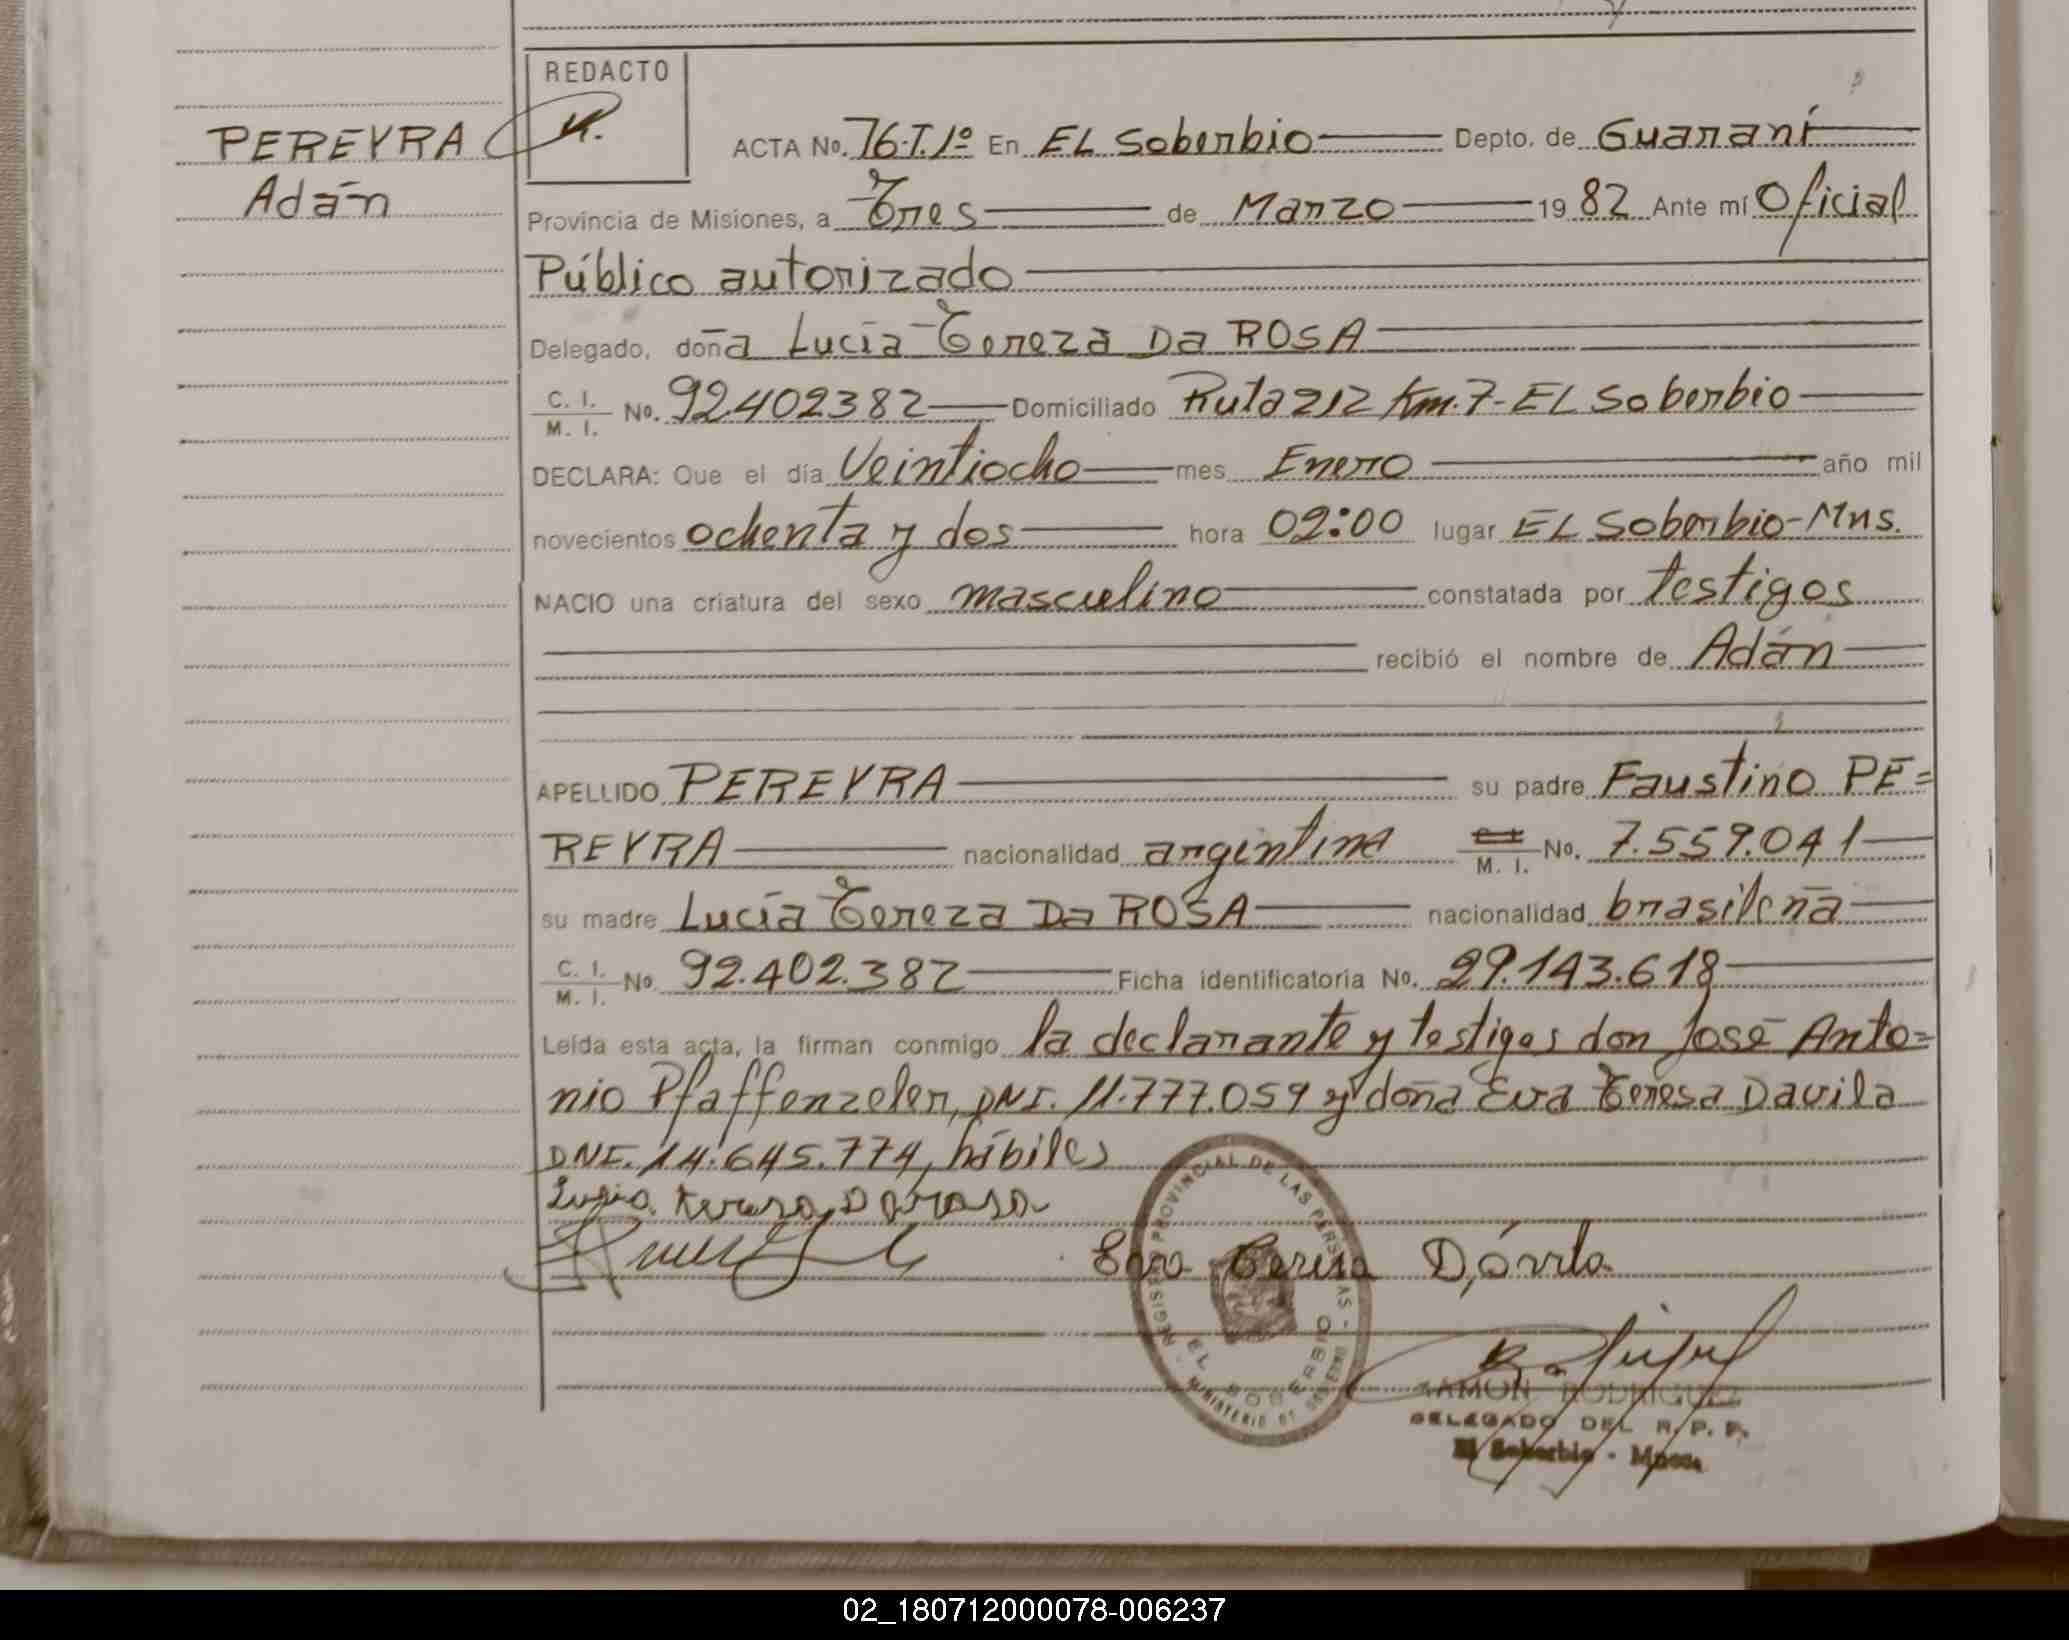 REDACTO
PEREYRA
Adán
ACTA No. 76-T.1º En EL Soberbio Depto. de Guaraní
Provincia de Misiones, a Tres de Marzo 19 82 Ante mí Oficial
Público autorizado
Delegado, doña Lucía Tereza Da ROSA
C. I. / M. I. No. 92.402382 Domiciliado Ruta 212 Km.7-EL Soberbio
DECLARA: Que el día Veintiocho mes Enero año mil
novecientos ochenta y dos hora 02:00 lugar EL Soberbio-Mns.
NACIO una criatura del sexo masculino constatada por testigos
recibió el nombre de Adán
APELLIDO PEREYRA su padre Faustino PE=
REYRA nacionalidad argentina C. I. / M. I. No. 7.559.041
su madre Lucía Tereza Da ROSA nacionalidad brasileña
C. I. / M. I. No 92.402.382 Ficha identificatoria No. 29.143.618
Leída esta acta, la firman conmigo la declarante y testigos don José Anto=
nio Pfaffenzeler, DNI. 11.777.059 y doña Eva Teresa Davila
DNI. 14.645.774, hábiles
Lusia Teresa Darosa
Eva Teresa Dávila
REGISTRO PROVINCIAL DE LAS PERSONAS - EL SOBERBIO - MINISTERIO DE GOBIERNO
RAMON RODRIGUEZ
DELEGADO DEL R. P. P.
El Soberbio - Mnes.
02_180712000078-006237